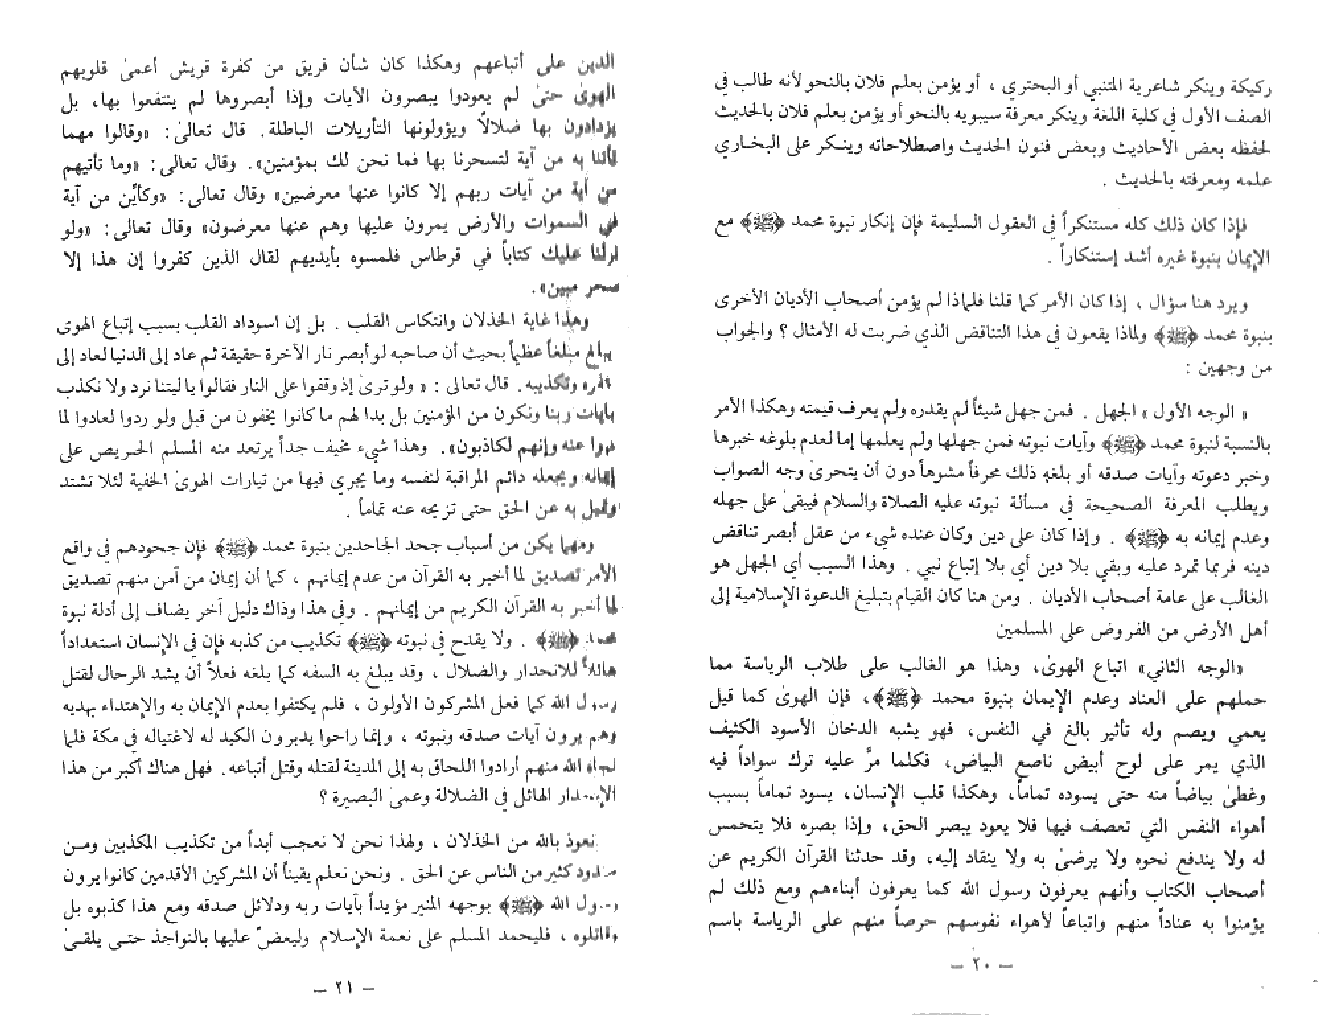 ركيكة وينكر شاعرية المتنبي أو البحتري ، أو يؤمن بعلم فلان بالنحو لأنه طالب في
الصف الأول في كلية اللغة وينكر معرفة سيبويه بالنحو أو يؤمن بعلم فلان بالحديث
لحفظه بعض الأحاديث وبعض فنون الحديث واصطلاحاته وينكر على البخاري
علمه ومعرفته بالحديث .
فإذا كان ذلك كله مستنكراً في العقول السليمة فإن إنكار نبوة محمد ﴿ﷺ﴾ مع
الإيمان بنبوة غيره أشد إستنكاراً .
ويرد هنا سؤال ، إذا كان الأمر كما قلنا فلماذا لم يؤمن أصحاب الأديان الأخرى
بنبوة محمد ﴿ﷺ﴾ ولماذا يقعون في هذا التناقض الذي ضربت له الأمثال ؟ والجواب
من وجهين :
« الوجه الأول » الجهل . فمن جهل شيئاً لم يقدره ولم يعرف قيمته وهكذا الأمر
بالنسبة لنبوة محمد ﴿ﷺ﴾ وآيات نبوته فمن جهلها ولم يعلمها إما لعدم بلوغه خبرها
وخبر دعوته وآيات صدقه أو بلغه ذلك محرفاً مشوهاً دون أن يتحرىٰ وجه الصواب
ويطلب المعرفة الصحيحة في مسألة نبوته عليه الصلاة والسلام فيبقىٰ على جهله
وعدم إيمانه به ﴿ﷺ﴾ . وإذا كان على دين وكان عنده شيء من عقل أبصر تناقض
دينه فربما تمرد عليه وبقي بلا دين أي بلا إتباع نبي . وهذا السبب أي الجهل هو
الغالب على عامة أصحاب الأديان . ومن هنا كان القيام بتبليغ الدعوة الإسلامية إلى
أهل الأرض من الفروض على المسلمين
«الوجه الثاني» اتباع الهوىٰ، وهذا هو الغالب على طلاب الرياسة مما
حملهم على العناد وعدم الإيمان بنبوة محمد ﴿ﷺ﴾، فإن الهوىٰ كما قيل
يعمي ويصم وله تأثير بالغ في النفس، فهو يشبه الدخان الأسود الكثيف
الذي يمر على لوح أبيض ناصع البياض، فكلما مرَّ عليه ترك سواداً فيه
وغطىٰ بياضاً منه حتى يسوده تماماً، وهكذا قلب الإنسان، يسود تماماً بسبب
أهواء النفس التي تعصف فيها فلا يعود يبصر الحق، وإذا بصره فلا يتحمس
له ولا يندفع نحوه ولا يرضىٰ به ولا ينقاد إليه، وقد حدثنا القرآن الكريم عن
أصحاب الكتاب وأنهم يعرفون رسول الله كما يعرفون أبناءهم ومع ذلك لم
يؤمنوا به عناداً منهم واتباعاً لأهواء نفوسهم حرصاً منهم على الرياسة باسم
– ٢٠ –
الدين على أتباعهم وهكذا كان شأن فريق من كفرة قريش أعمىٰ قلوبهم
الهوىٰ حتىٰ لم يعودوا يبصرون الآيات وإذا أبصروها لم ينتفعوا بها، بل
يزدادون بها ضلالاً ويؤولونها التأويلات الباطلة. قال تعالىٰ: «وقالوا مهما
تأتنا به من آية لتسحرنا بها فما نحن لك بمؤمنين». وقال تعالى: «وما تأتيهم
من آية من آيات ربهم إلا كانوا عنها معرضين» وقال تعالى: «وكأيِّن من آية
في السموات والأرض يمرون عليها وهم عنها معرضون» وقال تعالى: «ولو
نزلنا عليك كتاباً في قرطاس فلمسوه بأيديهم لقال الذين كفروا إن هذا إلا
سحر مبين».
وهذا غاية الخذلان وانتكاس القلب . بل إن اسوداد القلب بسبب إتباع الهوى
يبلغ مبلغاً عظيماً بحيث أن صاحبه لو أبصر نار الآخرة حقيقة ثم عاد إلى الدنيا لعاد إلى
كفره وتكذيبه. قال تعالى : « ولو ترىٰ إذ وقفوا على النار فقالوا يا ليتنا نرد ولا نكذب
بآيات ربنا ونكون من المؤمنين بل بدا لهم ما كانوا يخفون من قبل ولو ردوا لعادوا لما
نهوا عنه وإنهم لكاذبون». وهذا شيء مخيف جداً يرتعد منه المسلم الحريص على
إيمانه ويجعله دائم المراقبة لنفسه وما يجري فيها من تيارات الهوىٰ الخفية لئلا تشتد
وتميل به عن الحق حتى تزيحه عنه تماماً .
ومهما يكن من أسباب جحد الجاحدين بنبوة محمد ﴿ﷺ﴾ فإن جحودهم في واقع
الأمر تصديق لما أخبر به القرآن من عدم إيمانهم ، كما أن إيمان من آمن منهم تصديق
لما أخبر به القرآن الكريم من إيمانهم . وفي هذا وذاك دليل آخر يضاف إلى أدلة نبوة
محمد ﴿ﷺ﴾ . ولا يقدح في نبوته ﴿ﷺ﴾ تكذيب من كذبه فإن في الإنسان استعداداً
هائلاً للانحدار والضلال ، وقد يبلغ به السفه كما بلغه فعلاً أن يشد الرحال لقتل
رسول الله كما فعل المشركون الأولون ، فلم يكتفوا بعدم الإيمان به والإهتداء بهديه
وهم يرون آيات صدقه ونبوته ، وإنما راحوا يدبرون الكيد له لاغتياله في مكة فلما
نجاه الله منهم أرادوا اللحاق به إلى المدينة لقتله وقتل أتباعه. فهل هناك أكبر من هذا
الإنحدار الهائل في الضلالة وعمىٰ البصيرة ؟
نعوذ بالله من الخذلان ، ولهذا نحن لا نعجب أبداً من تكذيب المكذبين ومن
صدود كثير من الناس عن الحق . ونحن نعلم يقيناً أن المشركين الأقدمين كانوا يرون
رسول الله ﴿ﷺ﴾ بوجهه المنير مؤيداً بآيات ربه ودلائل صدقه ومع هذا كذبوه بل
وقاتلوه ، فليحمد المسلم على نعمة الإسلام وليعضّ عليها بالنواجذ حتى يلقىٰ
– ٢١ –